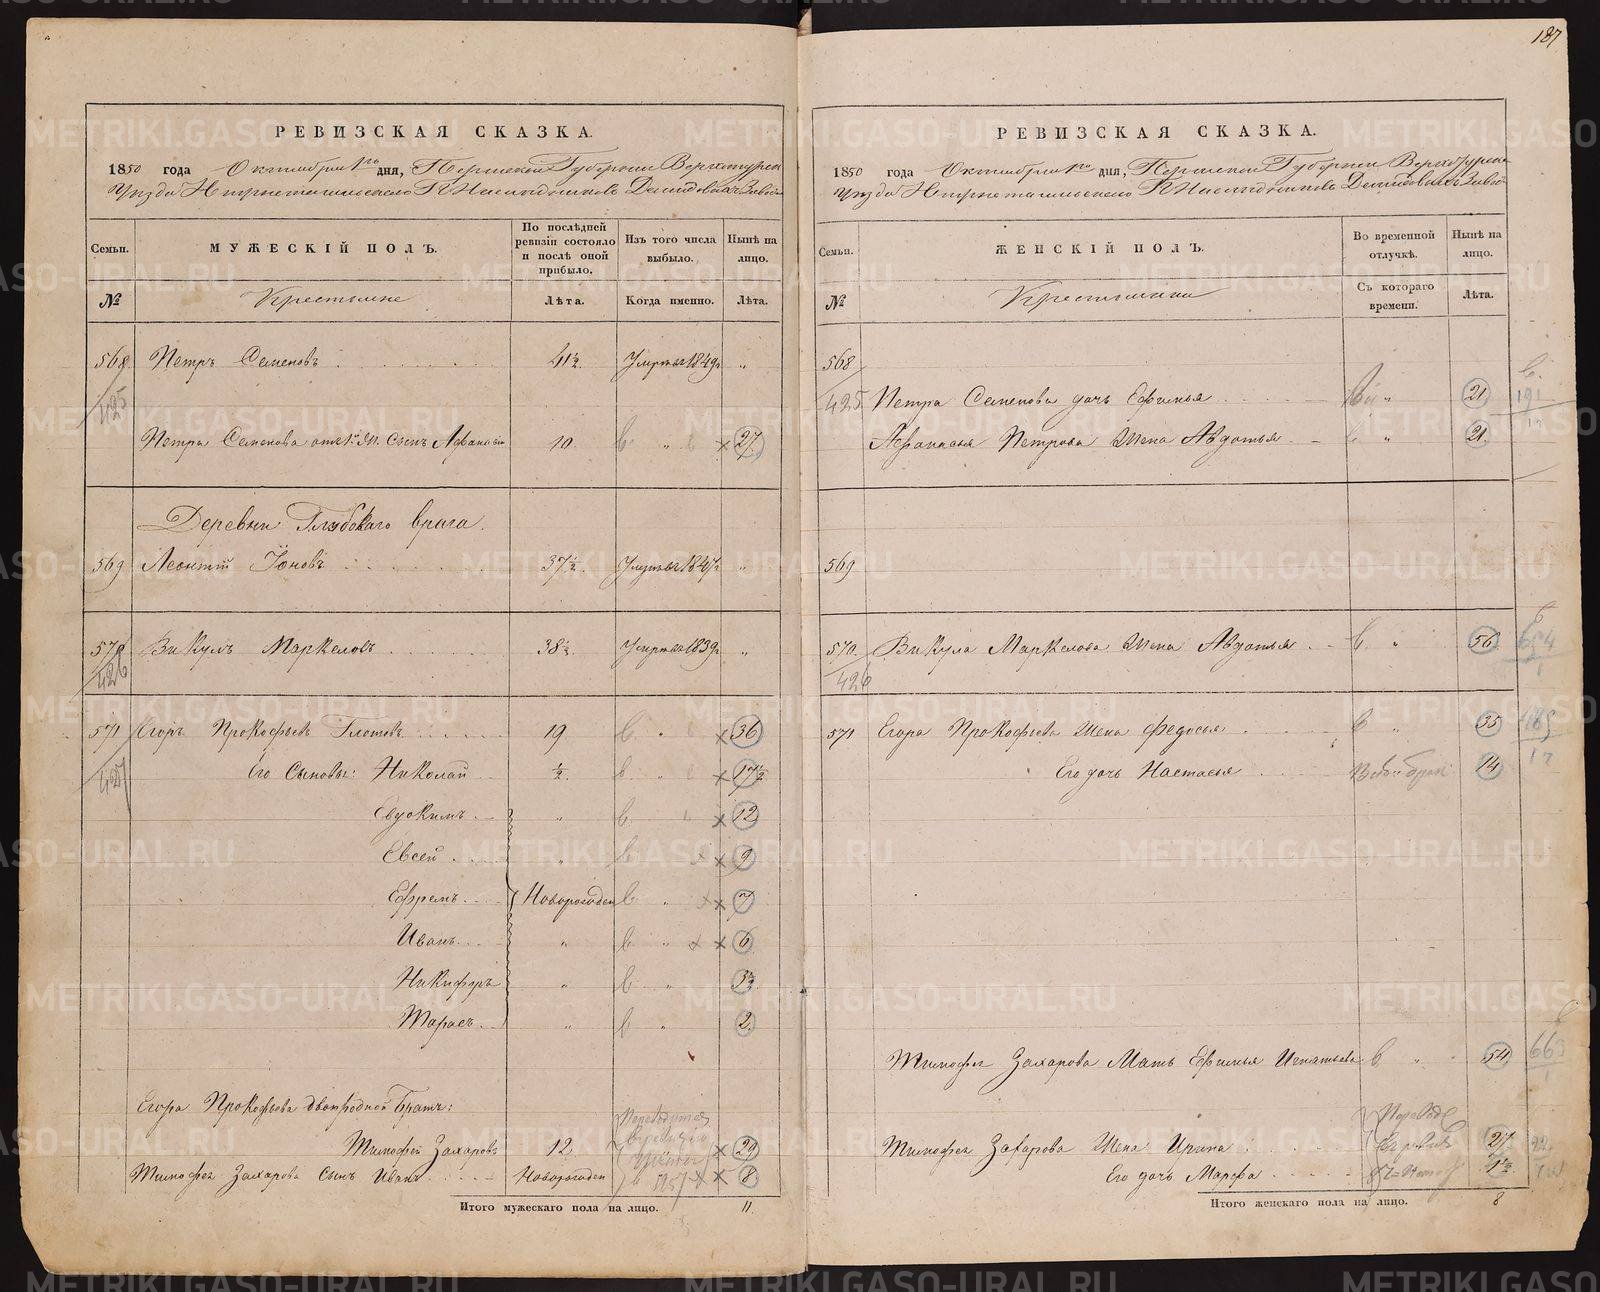 187
РЕВИЗСКАЯ СКАЗКА.
1850 года Октября 1го дня, Пермской Губернии Верхотурска
Уезда Нижнетагильскаго Наследниковъ Демидовыхъ Завод
Семьи.
МУЖЕСКІЙ ПОЛЪ.
По послѣдней ревизіи состояло и послѣ оной прибыло.
Изъ того числа выбыло.
Нынѣ на лицо.
№
Крестьяне
Лѣта.
Когда именно.
Лѣта.
568 Петръ Семеновъ 41½ Умеръ 1849 "
425
Петра Семенова сынъ Афанасій 10 " 27
Деревни Глубокаго врага.
569 Леонтій Іоновъ 37½ Умеръ 1847 "
570 Викулъ Маркеловъ 38½ Умеръ 1839 "
426
571 Егоръ Прокофьевъ Глотовъ 19 " 36
427 Его Сыновья: Николай ½ " 17½
Евдокимъ " 12
Евсей " 9
Ефремъ Новорожден " 7
Иванъ " " 6
Никифоръ " " 3½
Тарасъ " " 2
Егора Прокофьева двоюродной Братъ:
Тимофей Захаровъ 12 29
Тимофея Захарова Сынъ Иванъ Новорожден 8
Итого мужескаго пола на лицо. 11.
РЕВИЗСКАЯ СКАЗКА.
1850 года Октября 1го дня, Пермской Губерніи Верхотурска
Уезда Нижнетагильскаго Наследниковъ Демидовыхъ Завод
Семьи.
ЖЕНСКІЙ ПОЛЪ.
Во временной отлучкѣ.
Нынѣ на лицо.
№
Крестьянки
Съ котораго времени.
Лѣта.
568
425 Петра Семенова дочь Ефимья " 21
Афанасья Петрова Жена Авдотья " 21
569
570 Викула Маркелова Жена Авдотья " 56
426
571 Егора Прокофьева Жена Федосья " 35
Его дочь Настасья 14
Тимофея Захарова Мать Ефимья Игнатьева " 54
Тимофея Захарова Жена Ирина 27
Его дочь Марфа 1½
Итого женскаго пола на лицо. 8
METRIKI.GASO-URAL.RU